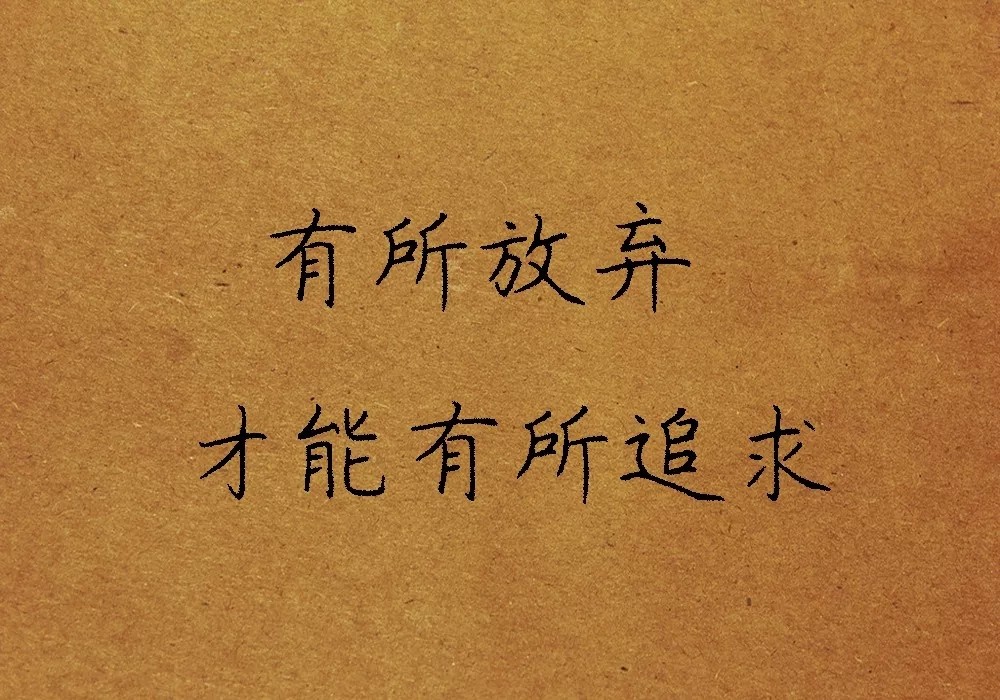 有所放弃
才能有所追求